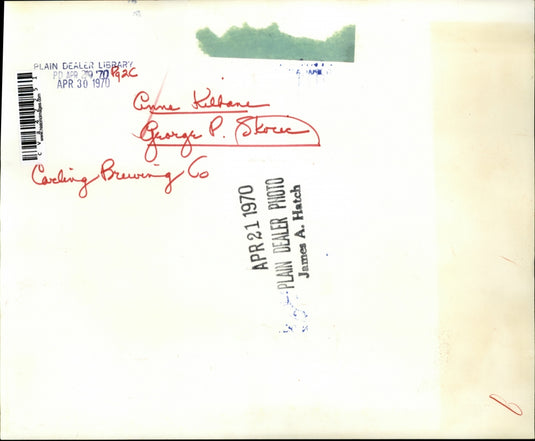 PLAIN DEALER LIBRARY
PD APR 29 '70 Pg2C
APR 30 1970
Anne Kilbane
George P. Skocic
Carling Brewing Co
APR 21 1970
PLAIN DEALER PHOTO
James A. Hatch